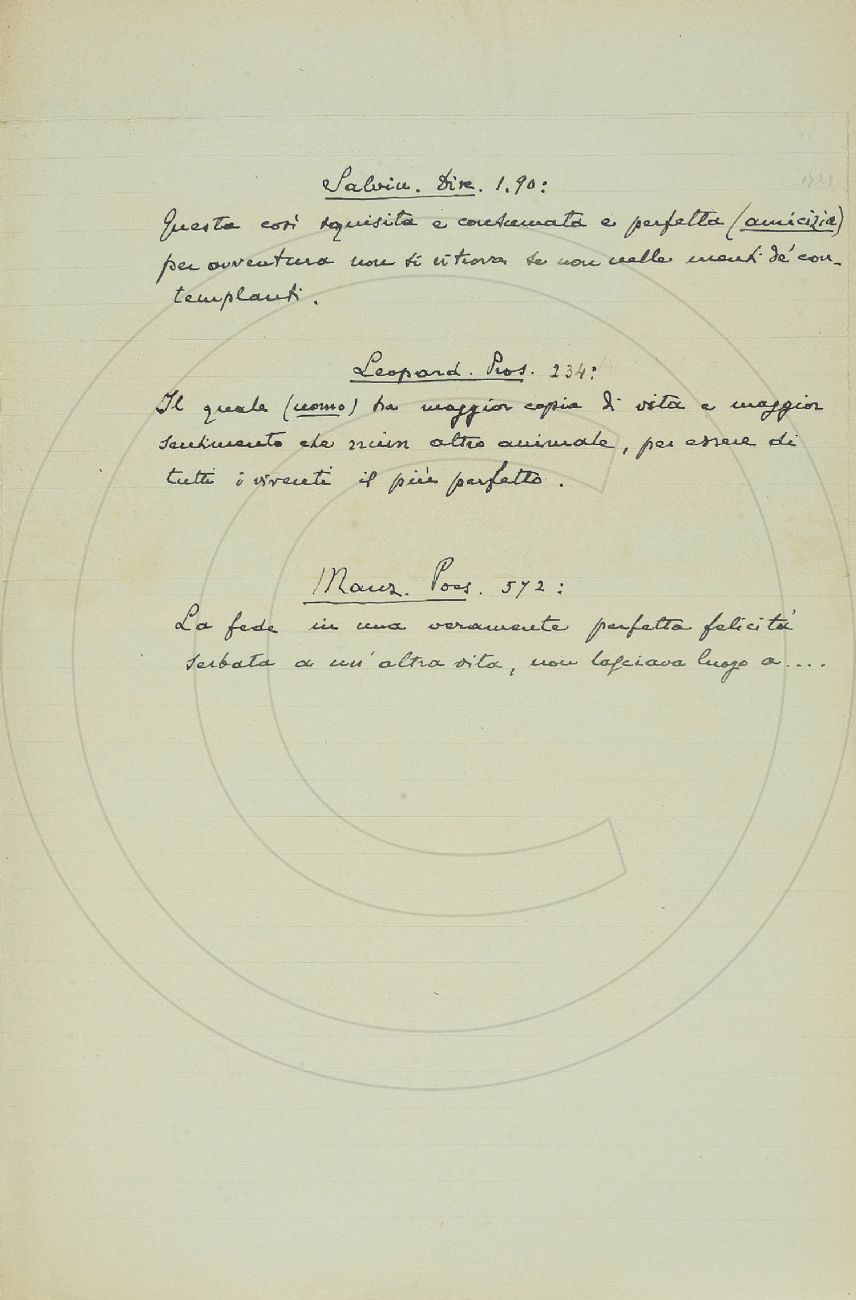 Salvin. Disc. 1.90:
Questa così squisita e consumata e perfetta (amicizia)
per avventura non si ritrova se non nelle menti de' con-
templanti.
Leopard. Pros. 234:
Il quale (uomo) ha maggior copia di vita e maggior
sentimento che niun altro animale, per essere di
tutti i viventi il più perfetto.
Manz. Poes. 572:
La fede in una veramente perfetta felicità
serbata a un'altra vita, non lasciava luogo a....